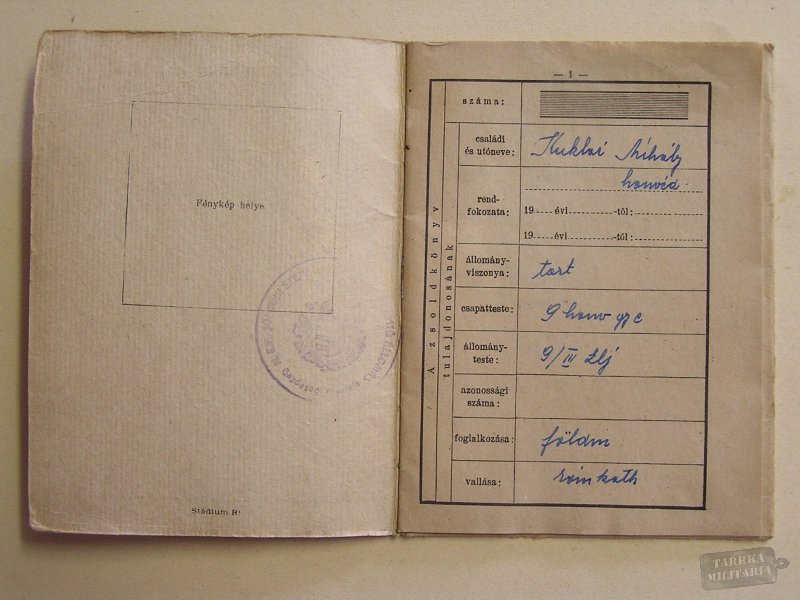 Fénykép helye
Stádium Rt
— 1 —
A zsoldkönyv
tulajdonosának
száma:
családi
és utóneve:
Mihály
rend-
fokozata:
honvéd
19 évi -tól:
19 évi -től:
állomány-
viszonya:
tart
csapatteste:
9 honv gy e
állomány-
teste:
9/III zlj
azonossági
száma:
foglalkozása:
földm
vallása:
róm kath
TARRKA
MILITARIA